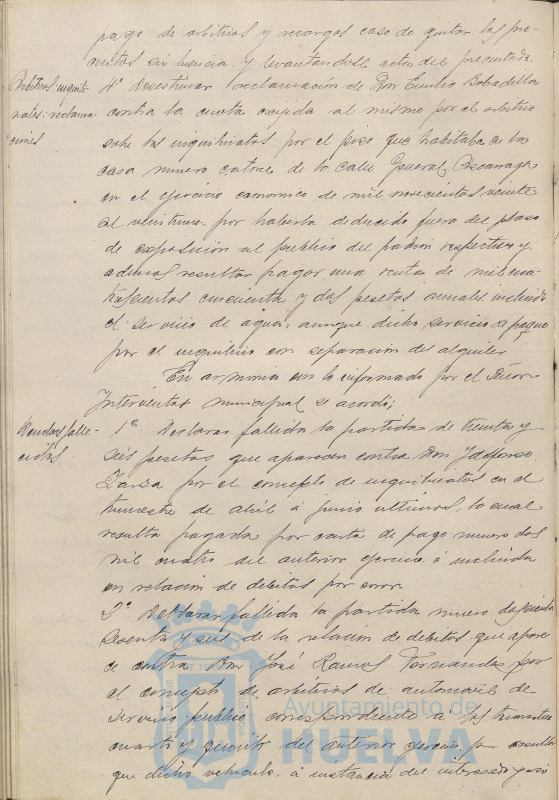 pago de arbitrios y recargos caso de quitar los pre-
cintos sin licencia y levantandose acta del precintado.
Arbitrios inquili-
natos: reclama-
ciones
4º Desestimar reclamación de Don Emilio Bobadilla
contra la cuota exigida al mismo por el arbitrio
sobre los inquilinatos por el piso que habitaba en la
casa numero catorce de la calle General Azcarraga
en el ejercicio economico de mil novecientos veinte
al veintiuno, por haberla deducido fuera del plazo
de exposición al publico del padron respectivo y
ademas resultar pagar una renta de mil cua-
trocientas cincuenta y dos pesetas anuales incluido
el servicio de agua, aunque dicho servicio se pague
por el inquilino con separación del alquiler
En armonia con lo informado por el Señor
Interventor municipal se acordó;
Deudas falli-
cidas
1º Declarar fallida la partida de treinta y
seis pesetas que aparecen contra Don Ildefonso
Zarza por el concepto de inquilinatos en el
trimestre de abril a junio ultimos, lo cual
resulta pagada por carta de pago numero dos
mil cuatro del anterior ejercicio é incluida
en relación de debitos por error.
2º Declarar fallida la partida numero doscientos
sesenta y seis de la relación de debitos que apare-
ce contra Don José Ramos Fernandez por
el concepto de arbitrios de automovil de
servicio publico correspondiente a los trimestres
cuarto y quinto del anterior ejercicio, por resultar
que dicho vehiculo, á instancia del interesado pasó
Ayuntamiento de
HUELVA